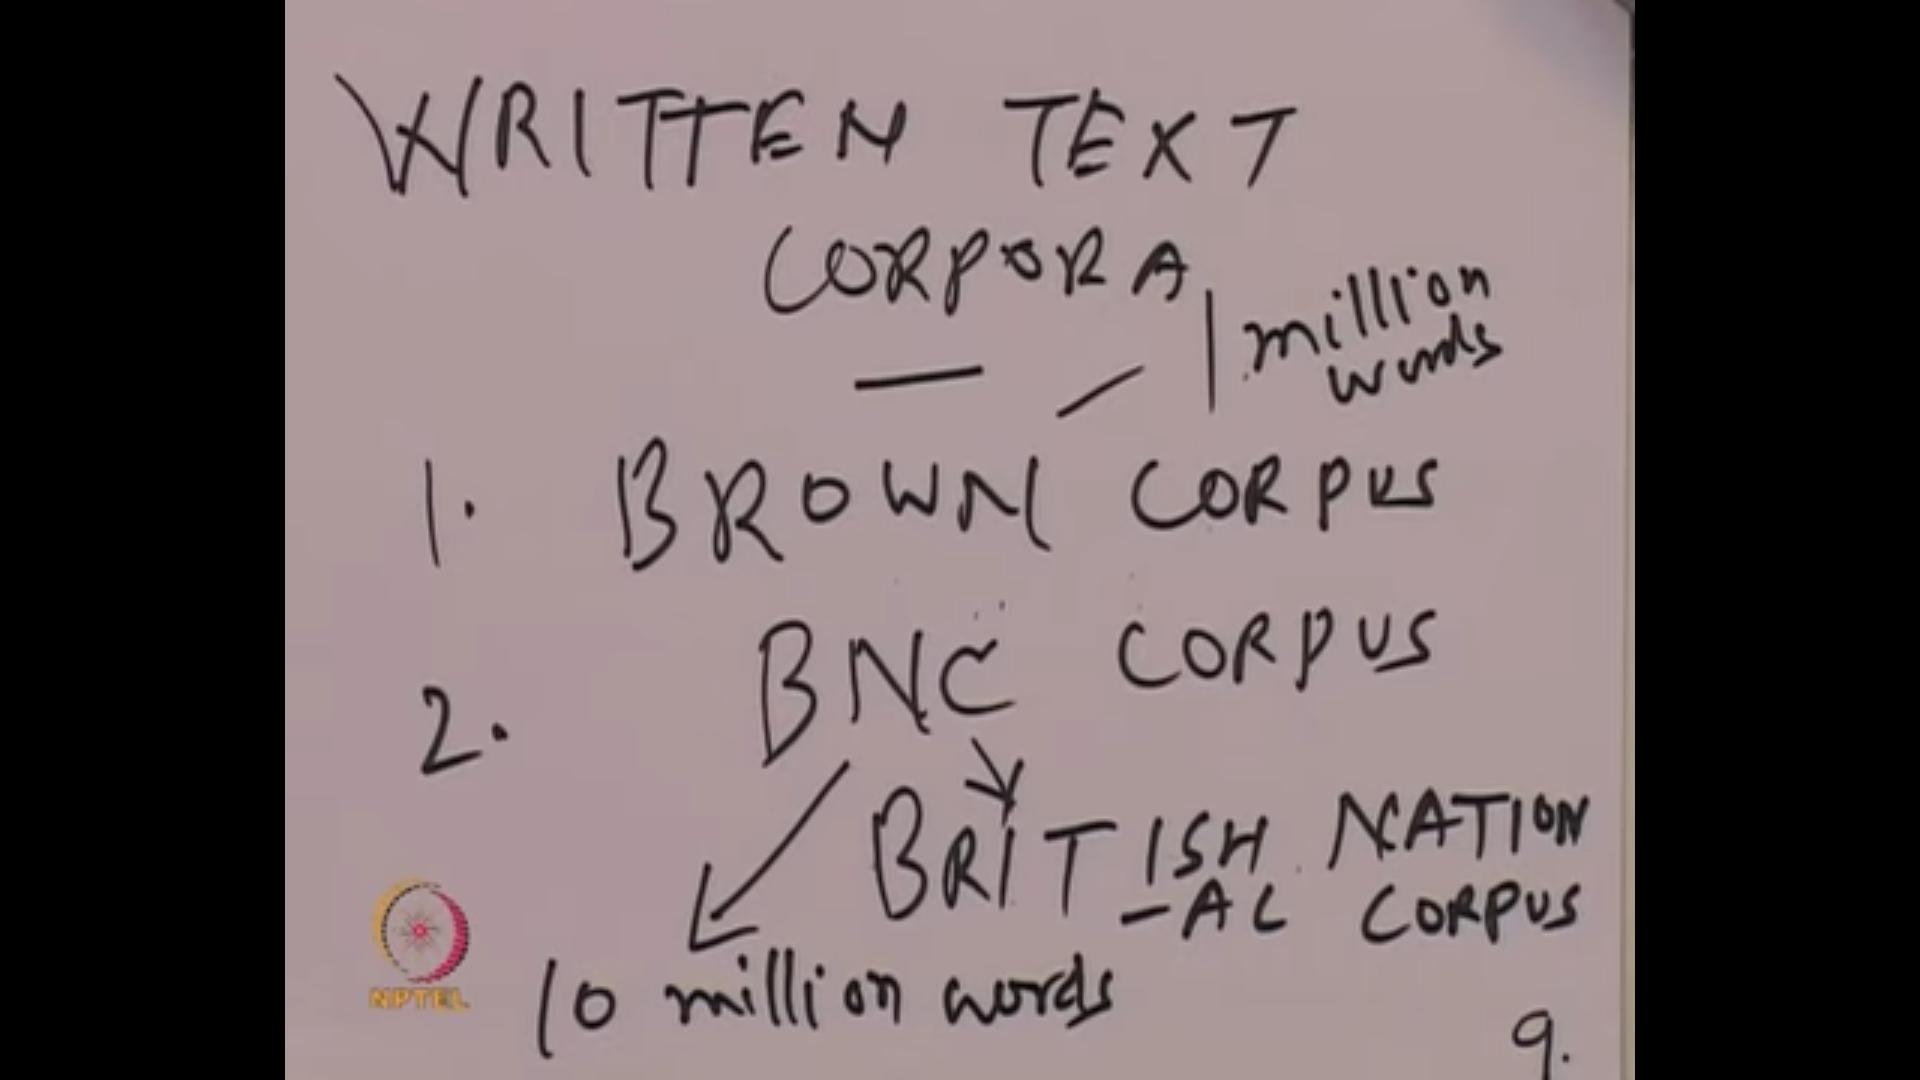 WRITTEN TEXT
CORPORA
1 million
words
1. BROWN CORPUS
2. BNC CORPUS
BRITISH NATION
-AL CORPUS
10 million words
NPTEL
9.